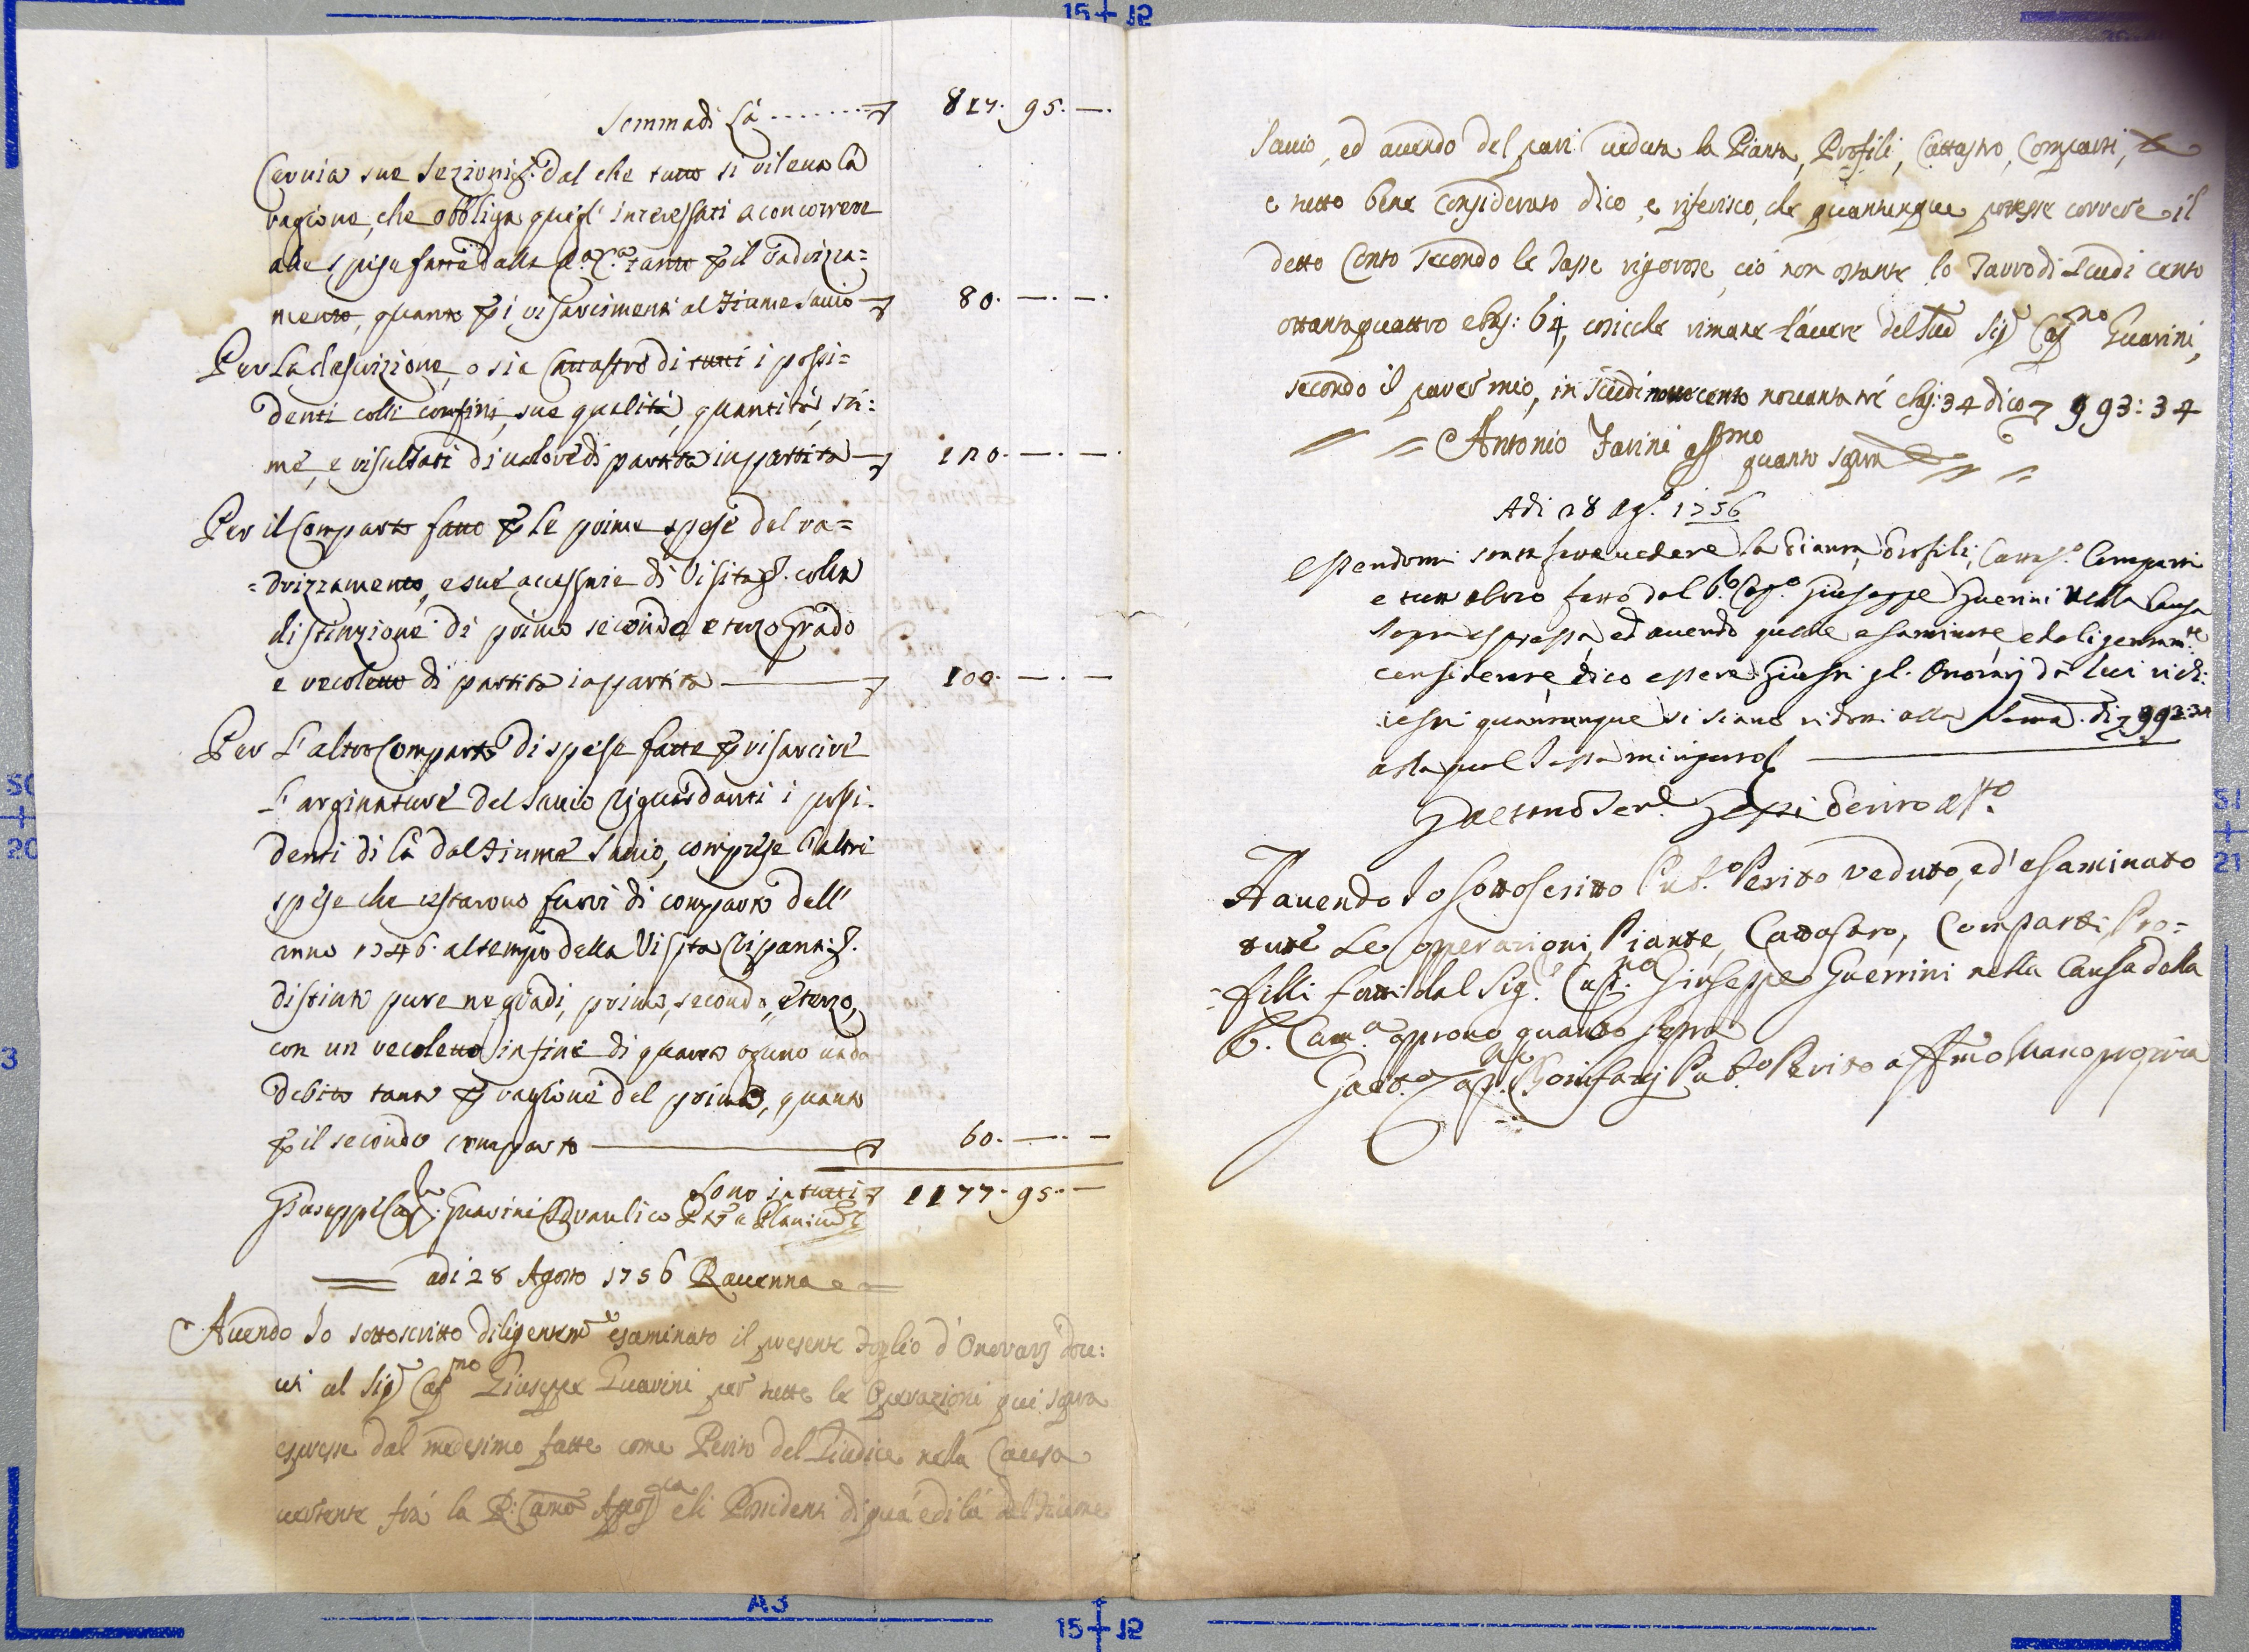 Somma di Là ........ 817. 95. —.
Cervia sue Sezioni &. dal che tutto si rileva la
ragione, che obbliga quegl' interessati a concorrere
alle spese fatte dalla R.a C.a tanto p il Radrizza=
mento, quanto p i risarcimenti al Fiume Savio 80. —. —.
Per La descrizione, o sia Cattastro di tutti i possi=
denti colli confini, sue qualità, quantità, sti=
me, e risultati di valore di partita in partita 120. —. —.
Per il Comparto fatto p le prime spese del ra=
=drizzamento, e sue accessorie di Visita &. colla
distinzione di primo secondo e terzo Grado
e recoletto di partita in partita 100. —. —
Per L'altro Comparto di spese fatte p risarcire
L'arginature del Savio riguardanti i possi=
denti di là dal Fiume Savio, comprese l'altri
spese che restarono fuori di comparto dell'
anno 1746. al tempo della Visita &.
distinto pure ne gradi, primo, secondo, e terzo,
con un recoletto infine di quanto ognuno và da
debito tanto p ragione del primo, quanto
p il secondo comparto 60. —. —
Sono in tutti 1177. 95. —
Giuseppe Cap. Guarini Idraulico
adi 28 Agosto 1756 Ravenna
Avendo Io sottoscritto diligentem.e esaminato il presente Foglio d'Onorarj dov=
uti al Sig.r Cap.no Giuseppe Guarini per tutte le Operazioni qui sopra
espresse dal medesimo fatte come Perito del Giudice nella Causa
vertente frà la R: Cam.a Apos.ca e li Possidenti di quà e di là dal Fiume
Savio, ed avendo del pari veduta la Pianta, Profili, Cattastro, Comparti, &
e tutto bene considerato dico, e riferisco, che quantunque potesse correre il
detto Conto secondo le Tasse rigorose, ciò non ostante lo Tarro di Scudi cento
ottantaquattro e baj: 64, cosicche rimane l'avere del Sud.o Sig.r Cap.no Guarini,
secondo il parer mio, in Scudi novecento novanta trè e baj: 34 dico 993: 34
Antonio Farini aff.mo quanto sopra
Adi 28 Ag.o 1756
Essendomi stata fatta vedere la Pianta, Profili, Cattas.o Comparti
e tutt'altro fatto dal S. Cap.o Giuseppe Guerini nella Causa
sopra espressa, ed avendo quelle esaminate, e diligentem.te
considerate, dico essere Giusti gl. Onorarj da lui richi=
esti quantunque si siano ridotti alla Soma di 993:34
alla qual Tassa mi riporto
Gaetano Perito aff.o
Havendo Io sottoscritto Pub.o Perito veduto, ed' esaminato
tutte Le operazioni, Piante, Cattastro, Comparti, Pro=
=filli fatti dal Sig.r Cap.no Giuseppe Guerrini nella Causa della
R. Cam.a approvo quanto sopra
Gaet.o Cap.no Bonifazj Pub.o Perito aff.mo Mano propria